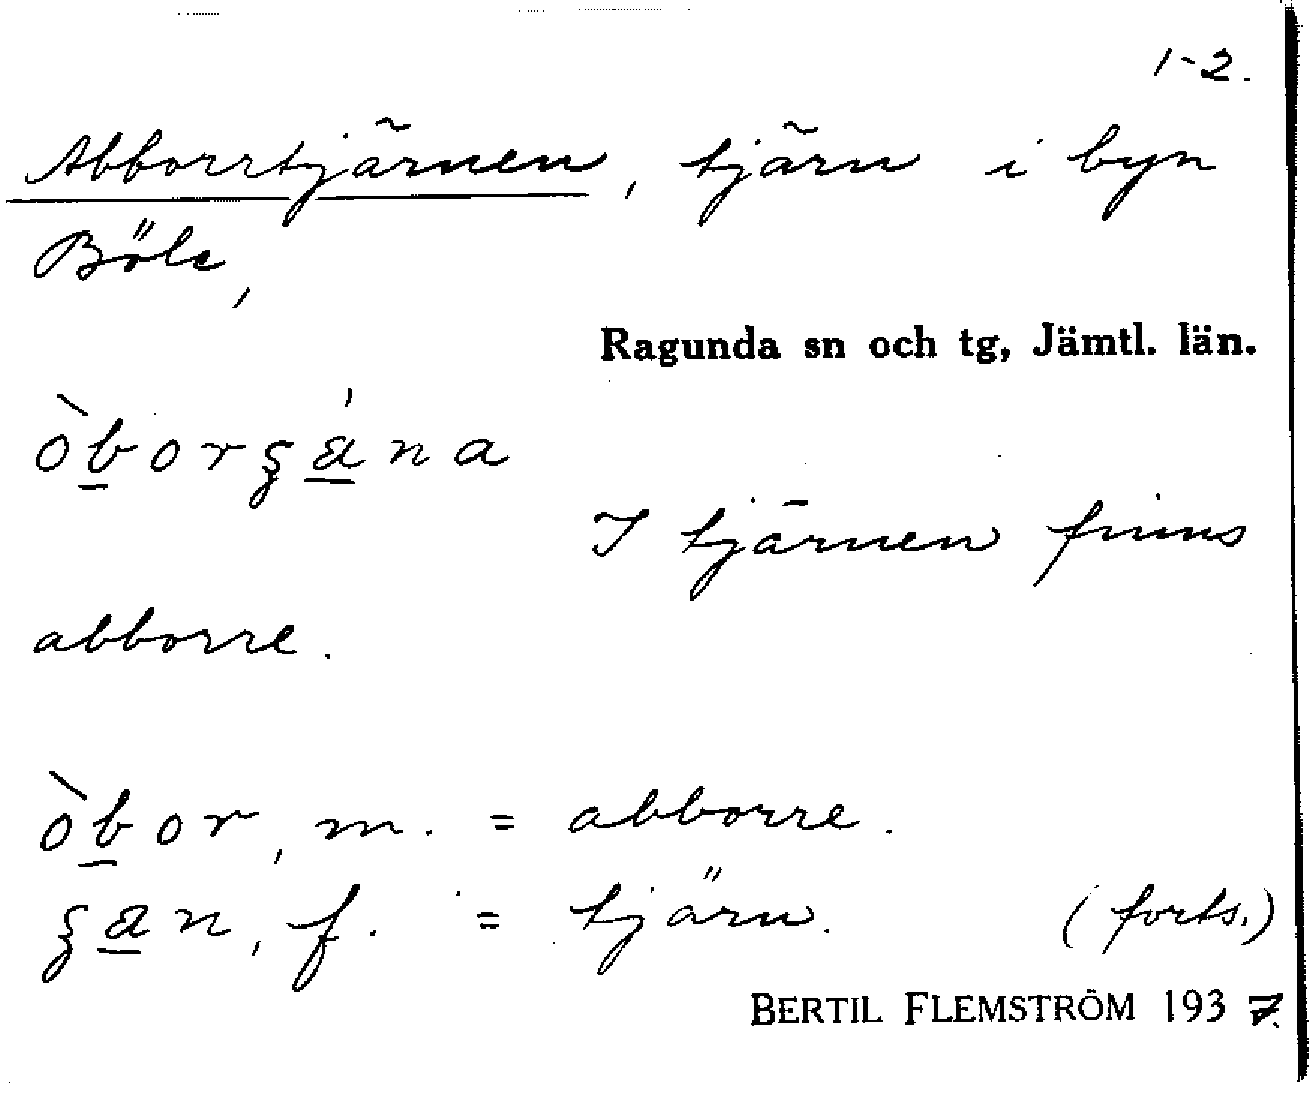 1-2.
Abborrtjärnen, tjärn i byn
Böle,
Ragunda sn och tg, Jämtl. län.
I tjärnen finns
abborre.
òbor, m. = abborre.
f. = tjärn. (forts.)
BERTIL FLEMSTRÖM 1937.